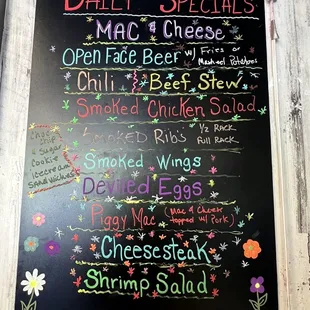 Daily Specials
MAC & Cheese
Open Face Beer w/ Fries or
Mashed Potatoes
Chili & Beef Stew
Smoked Chicken Salad
Smoked Ribs 1/2 Rack
Full Rack
Smoked Wings
Deviled Eggs
Piggy Mac (Mac & Cheese
topped w/ Pork)
Cheesesteak
Shrimp Salad
Chip
& Sugar
Cookie
Icecream
Sandwiches